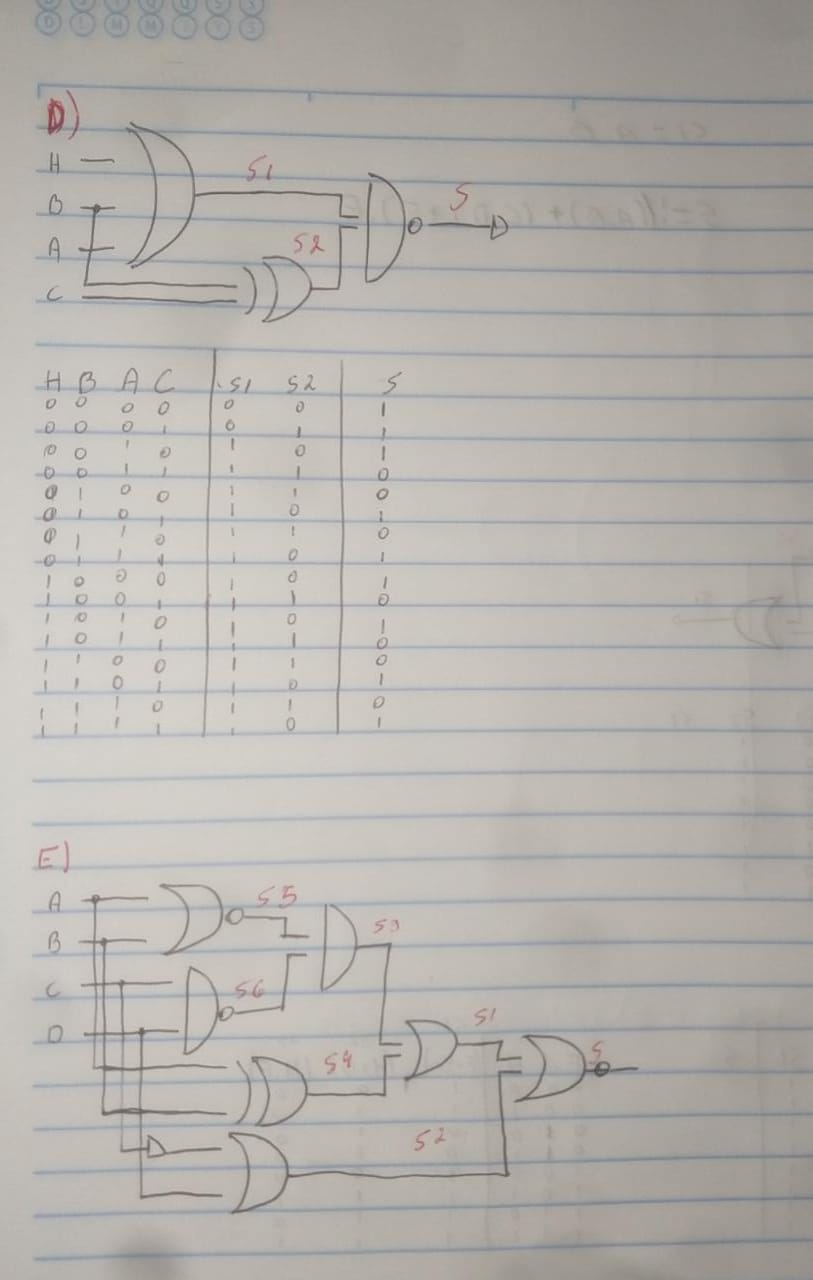 D)
H
S1
B
S
A
S2
C
H B A C S1 S2 S
0 0 0 0 0 0 1
0 0 0 1 0 1 1
0 0 1 0 1 0 1
0 0 1 1 1 1 0
0 1 0 0 1 1 0
0 1 0 1 1 0 1
0 1 1 0 1 1 0
0 1 1 1 1 0 1
1 0 0 0 1 0 1
1 0 0 1 1 1 0
1 0 1 0 1 0 1
1 0 1 1 1 1 0
1 1 0 0 1 1 0
1 1 0 1 1 0 1
1 1 1 0 1 1 0
1 1 1 1 1 0 1
E)
A
S5
B
S3
C
S6
D
S1
S4
S
S2